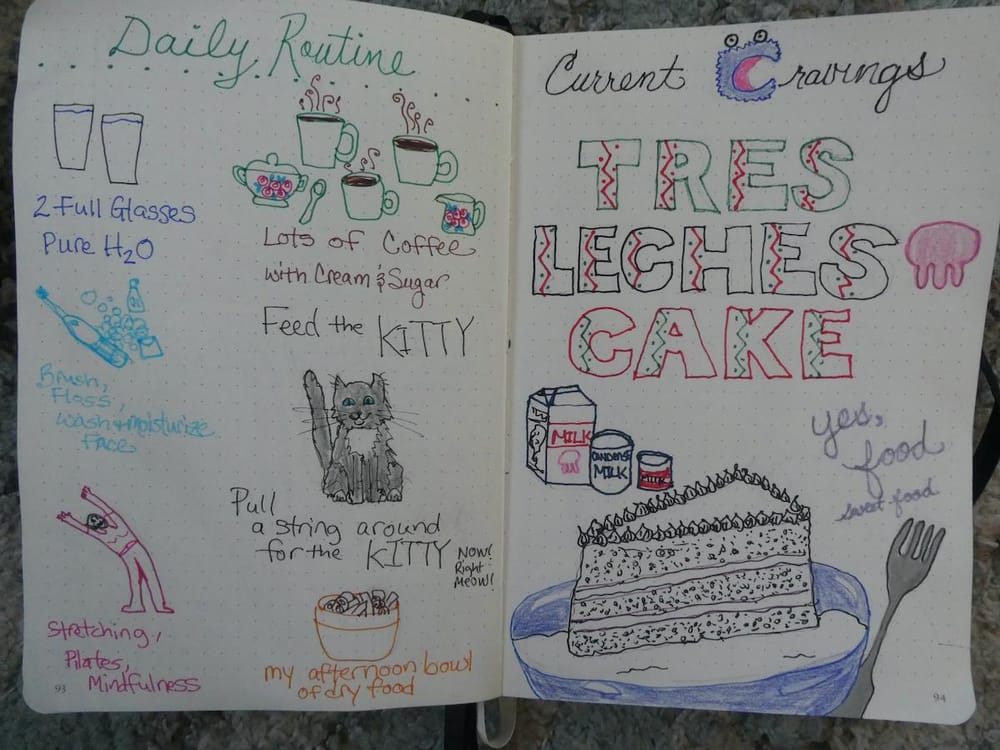 Daily Routine
2 Full Glasses
Pure H₂O
Brush,
Floss,
wash + moisturize
Face
Stretching,
Pilates,
Mindfulness
93
Lots of Coffee
with Cream & Sugar
Feed the KITTY
Pull
a string around
for the KITTY
NOW!
Right
MEOW!
my afternoon bowl
of dry food
Current Cravings
TRES
LECHES
CAKE
MILK
CONDENSE
MILK
MILK
yes,
food
sweet food
94